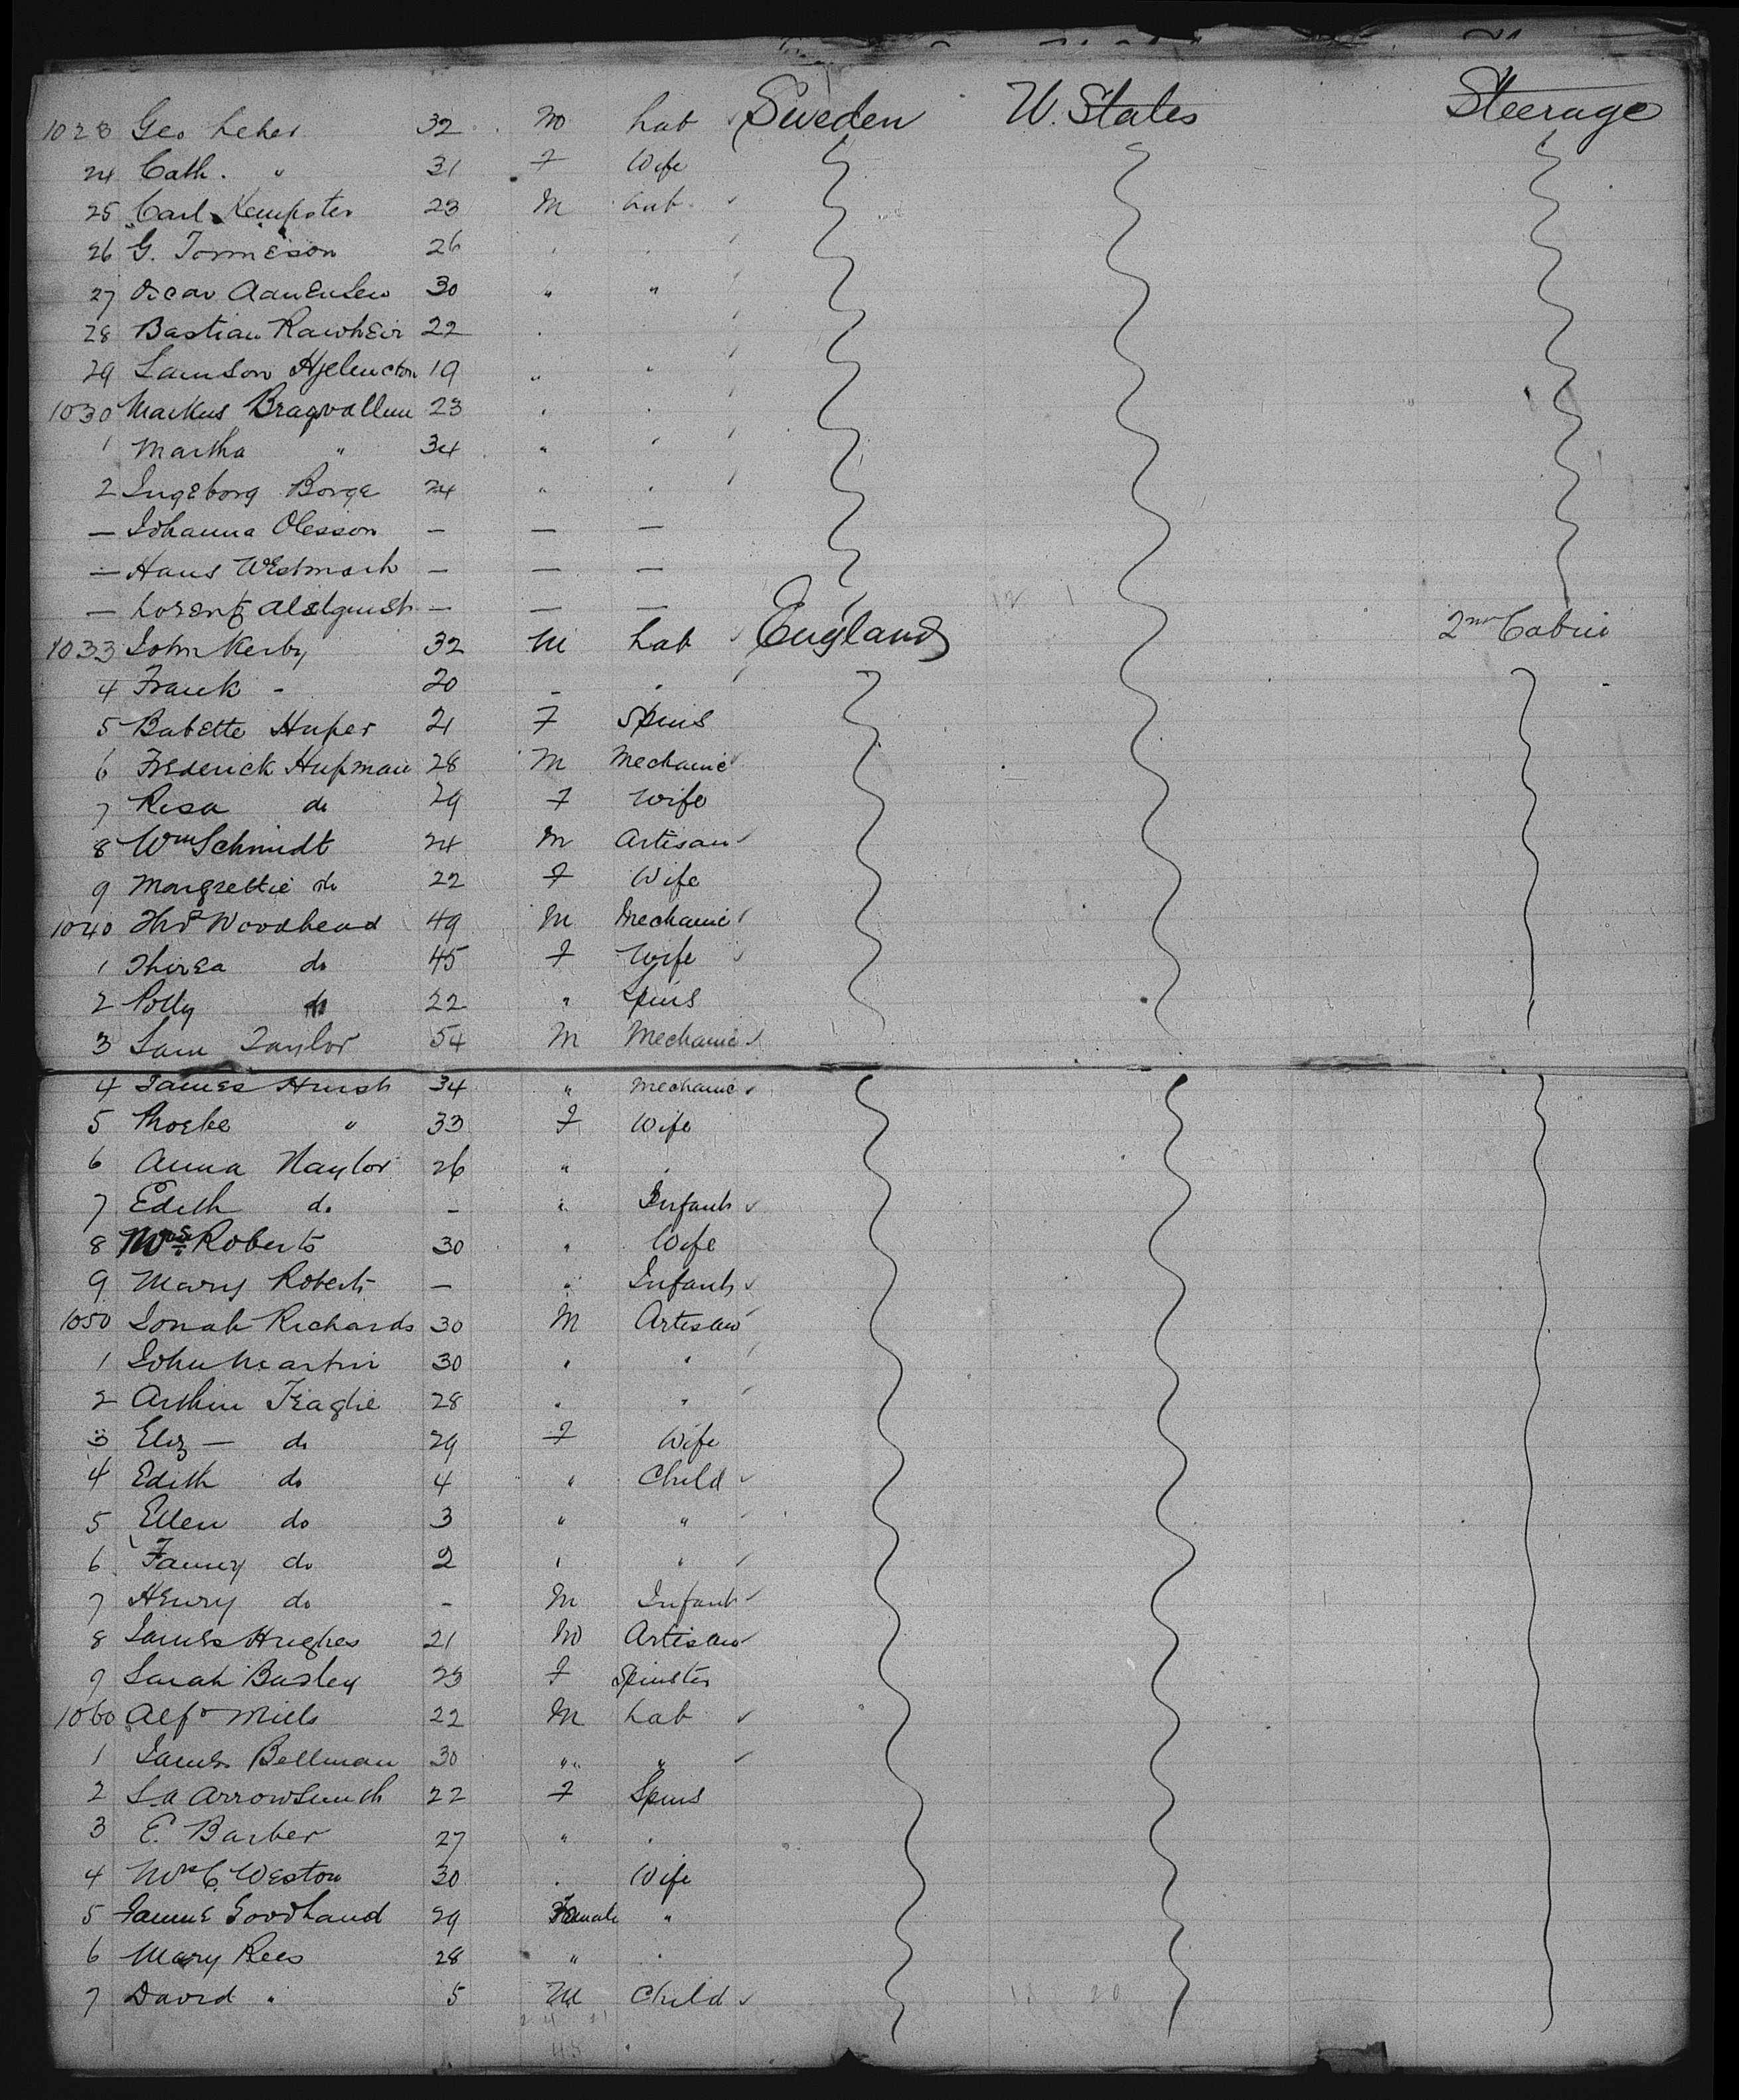 1023 Geo Leher 32 M Lab Sweden U. States Steerage
24 Cath. " 31 F Wife
25 Carl Kempster 23 M Lab
26 G. 26
27 Oscar 30 " "
28 Bastian 22
29 Samson 19 " "
1030 Markus 23
1 Martha " 34 "
2 Ingeborg Borge 24 "
— Johanna Olesson — — —
— Hans Westmark — — —
— Lorentz — — —
1033 John Kerby 32 M Lab England 2nd Cabin
4 Frank - 20 -
5 Babette Huper 21 F Spins
6 Frederick Hupman 28 M Mechanic
7 Rosa do 29 F Wife
8 Wm Schmidt 24 M Artisan
9 Margrettie do 22 F Wife
1040 Thos Woodhead 49 M Mechanic
1 Thirea do 45 F Wife
2 Polly do 22 " Spins
3 Sam Taylor 54 M Mechanic
4 James Hurst 34 " Mechanic
5 Phoebe " 33 F Wife
6 Anna Naylor 26 "
7 Edith do - " Infant
8 Mrs Roberts 30 " Wife
9 Mary Roberts — " Infant
1050 Jonah Richards 30 M Artisan
1 John Martin 30 " "
2 Arthur Teague 28 " "
3 Eliz — do 29 F Wife
4 Edith do 4 " Child
5 Ellen do 3 " "
6 Fanny do 2 " "
7 Henry do - M Infant
8 James Hughes 21 M Artisan
9 Sarah Basley 23 F Spinster
1060 Alfd Mills 22 M Lab
1 James Bellman 30 " "
2 S.a Arrowsmith 22 F Spins
3 E. Barber 27 "
4 Mrs C. Weston 30 Wife
5 Fannie Goodhand 29 Female "
6 Mary Rees 28 "
7 David " 5 M Child